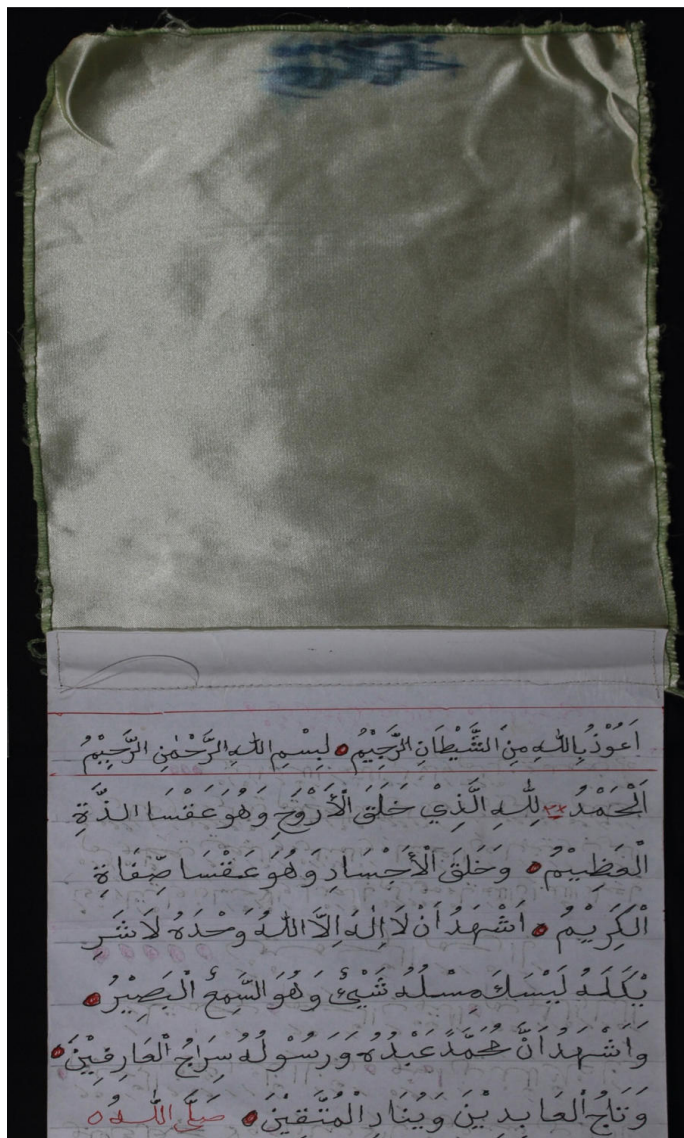 اَعُوْذُ بِاللّٰهِ مِنَ الشَّيْطَانِ الرَّجِيْمُ لبِسْمِ اللّٰهِ الرَّحْمٰنِ الرَّحِيْمُ
اَلْحَمْدُ لِلّٰهِ الَّذِيْ خَلَقَ الْأَرْوَحِ وَهُوَ عَقْسَا الذَّةِ
الْعَظِيْمُ وَخَلَقَ الْأَجْسَادِ وَهُوَ عَقْسَا صِّفَاةِ
الْكَرِيْمُ اَشْهَدُ اَنْ لَا اِلٰهَ اِلَّا اللّٰهُ وَحْدَهُ لَا شَرِ
يْكَلَهُ لَيْسَكَ مِسْلُهُ شَيْئٌ وَهُوَ السَّمِعُ الْبَصِيْرُ
وَاَشْهَدُ اَنَّ مُحَمَّدً عَبْدُهُ وَرَسُوْلُهُ سِرَاجُ الْعَارِفِيْنَ
وَتَاجُ الْعَابِدِيْنَ وَيُنَادِ الْمُتَّقِيْنَ صَلَّى اللّٰهُ